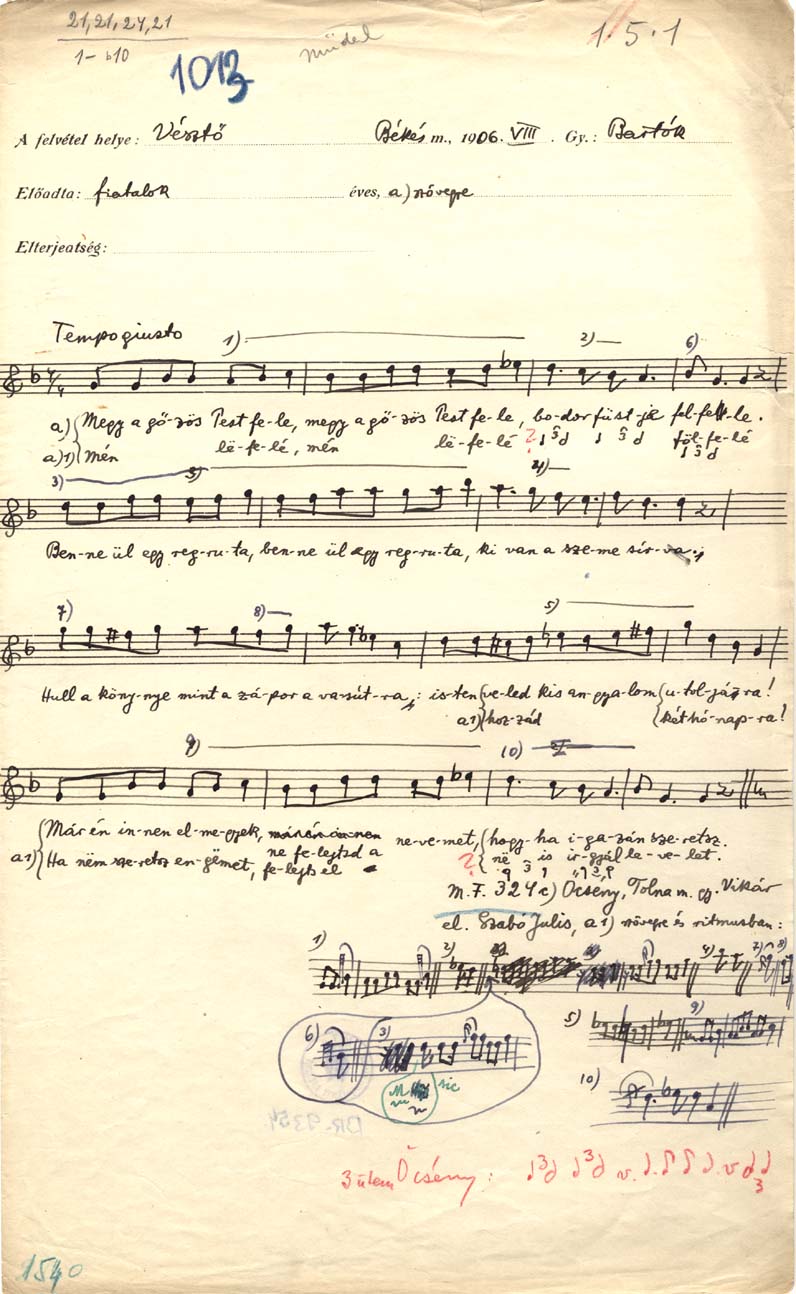 21,21,24,21
1– b10
müdal
1.5.1
A felvétel helye: Vésztő Békés m., 1906. VIII. Gy.: Bartók
Előadta: fiatalok éves, a) szövegre
Elterjedtség:
Tempo giusto
1) 2) 6)
a) Megy a gő-zös Pest fe-le, megy a gő-zös Pest fe-le, bo-dor füst-je fel-fel-le.
a)1) Mén lë-fe-lé, mén lë-fe-lé ? föl-fe-lé
3) 3) 4)
Ben-ne ül egy reg-ru-ta, ben-ne ül egy reg-ru-ta, ki van a sze-me sír-va;
7) 8) 5)
Hull a köny-nye mint a zá-por a va-sút-ra; is-ten ve-led kis an-gya-lom u-tol-jára!
a1) hoz-zád két hó-nap-ra!
9) 10)
Már én in-nen el-me-gyek, ne-ve-met, hogy-ha i-ga-zán sze-retsz.
a1) Ha nëm sze-retsz en-gëmet, ne fe-lejtsd a ? në is ir-gyál le-ve-let.
fe-lejts el
M.F. 324c) Őcsény, Tolna m. gy. Vikár
el. Szabó Julis, a1) szövegre és ritmusban:
1) 2) 4) 7) 8)
6) 3) 5) 9)
sic
10)
BR-9354
3 ütem Őcsény:
1540